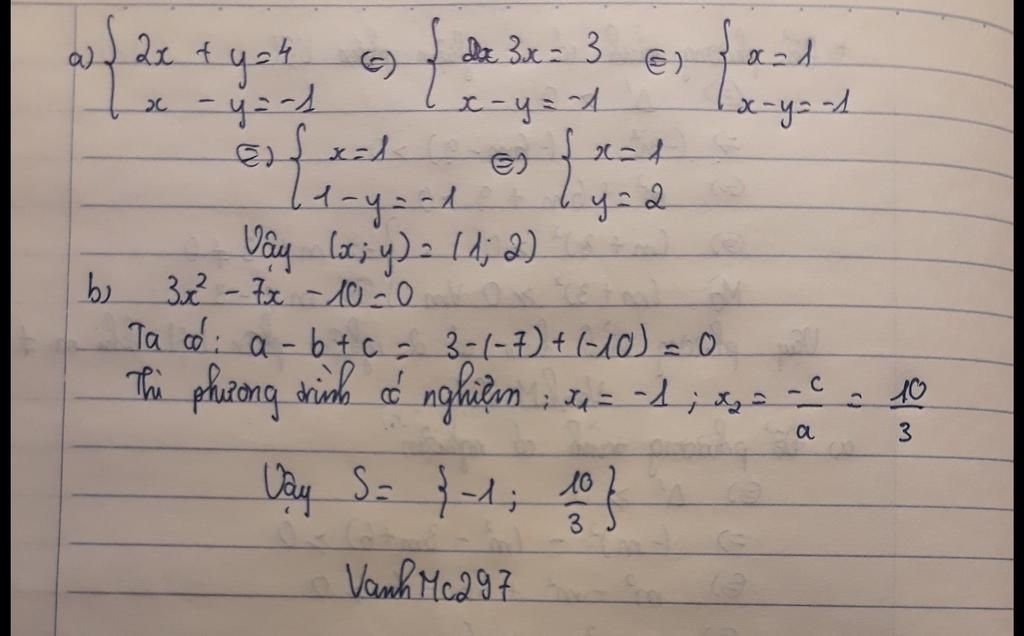 a) { 2x + y = 4 ⇔ { 3x = 3 ⇔ { x = 1
x - y = -1 x - y = -1 x - y = -1
⇔ { x = 1 ⇔ { x = 1
1 - y = -1 y = 2
Vậy (x; y) = (1; 2)
b) 3x² - 7x - 10 = 0
Ta có: a - b + c = 3 - (-7) + (-10) = 0
Thì phương trình có nghiệm: x₁ = -1 ; x₂ = -c/a = 10/3
Vậy S = {-1; 10/3}
VanhMc297